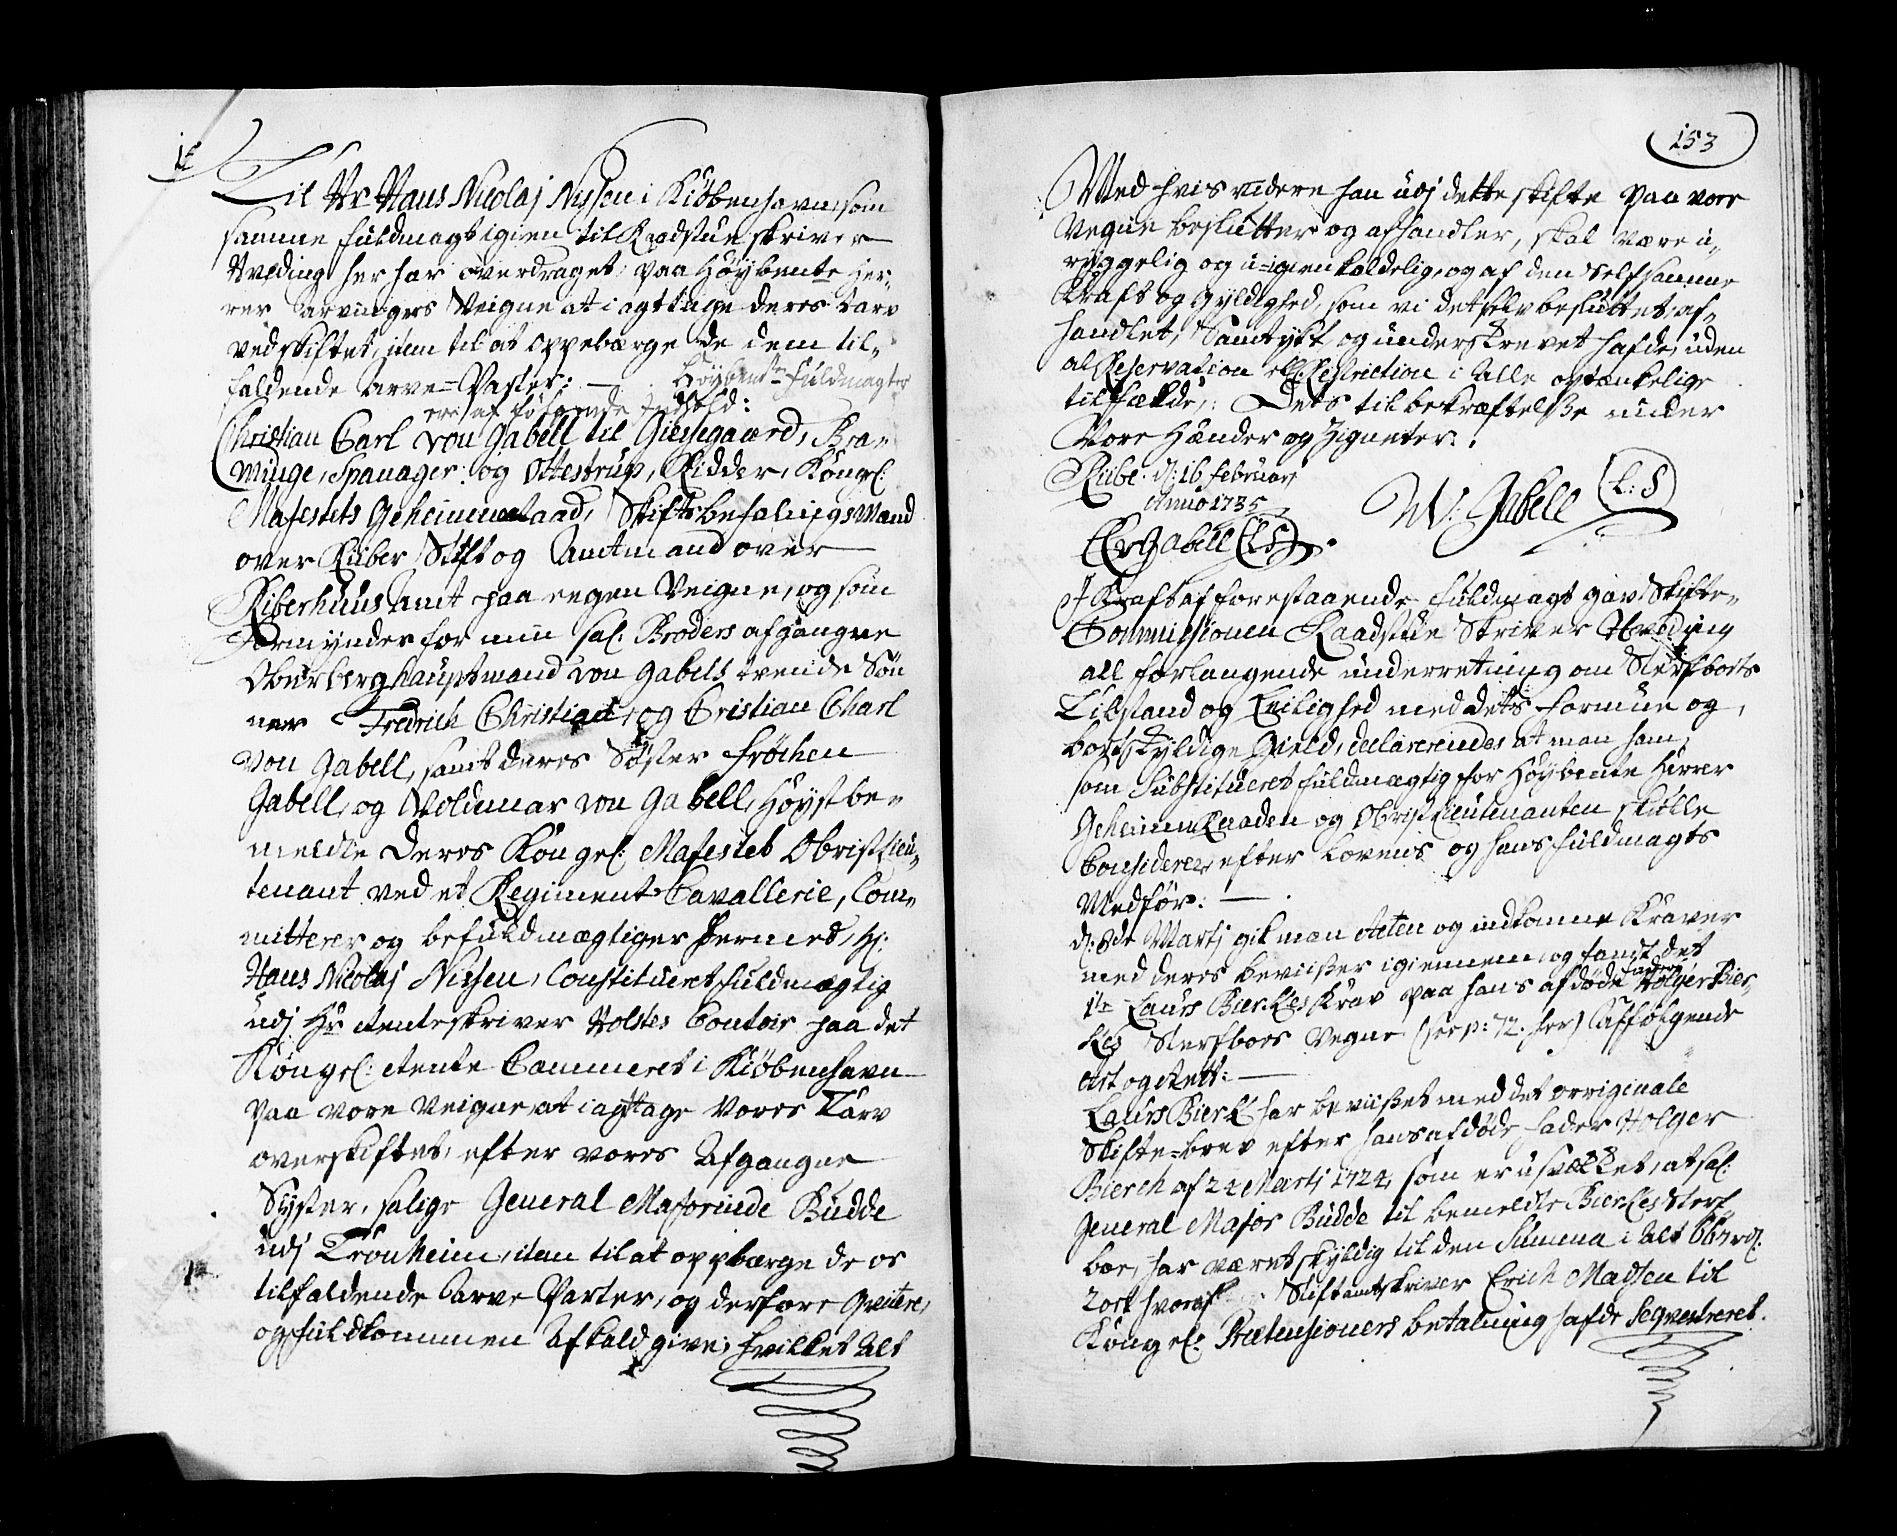 Til Hr Hans Nicolaj Nissen i Kiöbenhavn, som
samme fuldmagt igien til Raadstueskriver
Hveding her har overdraget, paa Höÿbente Her-
rer Arvingers Veigne at i agttage deres tarv
ved skiftet, item til at oppebærge de dem til-
faldende Arve-Parter; — Höÿbente fuldmagter
er af fölgende Indhold:
Christian Carl von Gabell til Giessegaard, Bra-
minge, Spanager og Ottestrup, Ridder, Kongel:
Majestets Geheimeraad, Stiftsbefalingsmand
over Riiber Stift og Amtmand over
Riberhuus Amt paa eegen Veigne, og som
Formynder for min sal: Broders afgangne
Oberberghauptmand von Gabels tvende Sön
ner Fredrich Christian, og Cristian Charl
von Gabell, samt deres Söster Fröchen
Gabell, og Woldemar von Gabell, Höÿstbe-
meldte Deres Kongel: Majestet Obristlieu-
tenant ved et Regiment Cavallerie, Com-
mitterer og befuldmægtiger hermed, Hr:
Hans Nicolaj Nissen, Constitueret fuldmægtig
udj Hr Renteskriver Holstes Contoir paa det
Kongel: Rente Cammeret i Kiöbenhavn
paa vore Veigne, at i agttage Vores Tarv
over skiftet, efter vores Afgangne
Syster, salige General Majorinde Budde
udj Tronheim, item til at oppebærge de os
tilfaldende Arve Parter, og derfore Qvitere,
og fuldkommen Afkald give; hvilket Alt
153
Med hvis videre han udj dette skifte paa vore
Vegne beslutter og afhandler, skal være u-
ryggelig og u-igienkaldelig, og af den selfsamme
Kraft og Gyldighed, som vi det selv besluttet, af-
handlet, Samtykt og underskrevet hafde, uden
al Reservation ell: Restriction i Alle optænkelige
tilfælde, Dets til bekræftelse under
Vore Hænder og Zigneter.
Riibe d: 16 Februarj
Anno 1735
CCv Gabell (LS) W: Gabell (L:S)
I Kraft af forestaaende fuldmagt gav Skifte-
Commissionen Raadstue Skriver Hveding
all forlangende underretning om Sterfboets
Tilstand og Leilighed med dets formue og
bortskyldige Gield, declarerendes at man ham,
som Substitueret fuldmægtig for Höÿbente Herrer
GeheimeRaaden og ObristLieutenanten skulle
Considerer, efter Lovens og hans fuldmagts
Medför: —
d: 8de Martj gik man Acten og indkomne Kraver
med deres beviiser igiennem, og fandt det
1te Laurs Bierkes Krav paa hans afdöde Fader Holger Bier-
kes Sterfboes Vegne (see p: 72. her) Afffölgende
Art og Rett: —
Laurs Bierk har beviiset med det orriginale
Skifte-brev efter hans afdöde fader Holger
Bierch af 24 Martj 1724, som er usvækket, at sal:
General Major Budde til bemeldte Bierkes Sterf
boe, har været skyldig til den Summa i Alt 667 rd:
2 ort hvoraf Stiftamtskriver Erich Madsen til
Kongel: Prætensioners betaling hafde Seqvestreret.